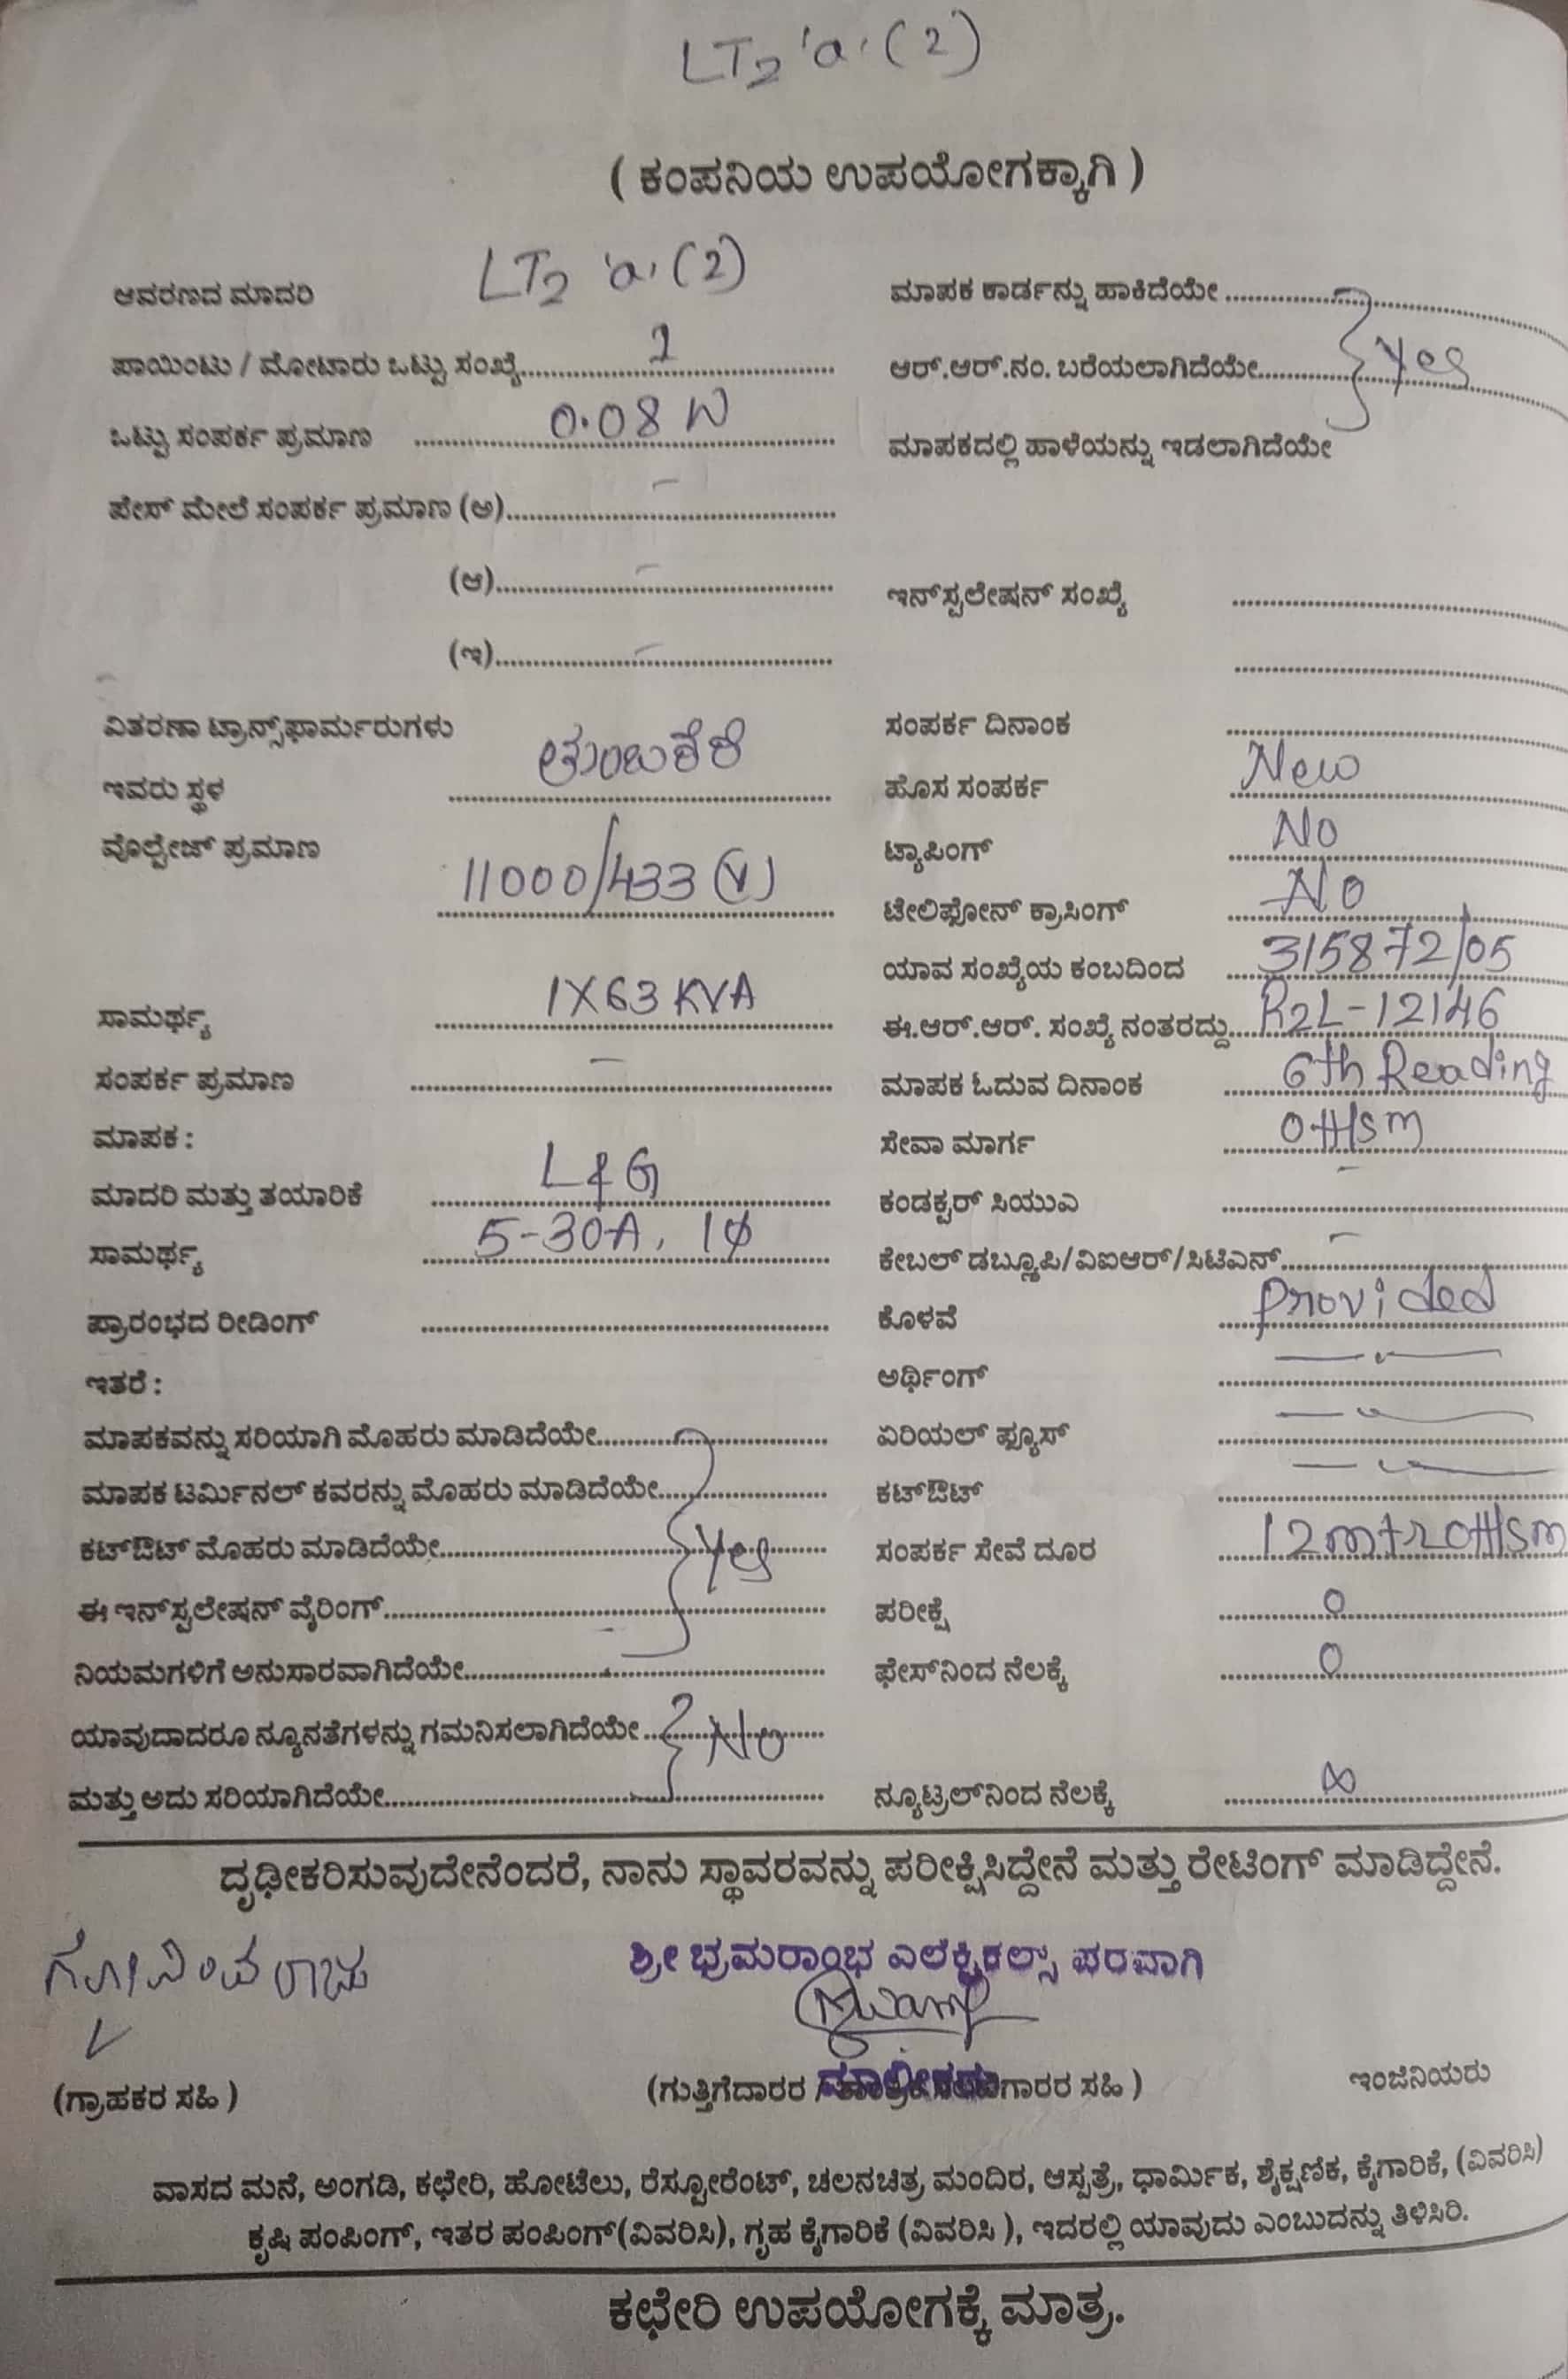 LT2 'a' (2)
( ಕಂಪನಿಯ ಉಪಯೋಗಕ್ಕಾಗಿ )
ಆವರಣದ ಮಾದರಿ LT2 'a' (2)
ಪಾಯಿಂಟು / ಮೋಟಾರು ಒಟ್ಟು ಸಂಖ್ಯೆ
ಒಟ್ಟು ಸಂಪರ್ಕ ಪ್ರಮಾಣ 0.08 W
ಪೇಸ್ ಮೇಲೆ ಸಂಪರ್ಕ ಪ್ರಮಾಣ (ಅ) –
(ಆ) –
(ಇ) –
ವಿತರಣಾ ಟ್ರಾನ್ಸ್‌ಫಾರ್ಮರುಗಳು
ಇವರು ಸ್ಥಳ
ವೊಲ್ಟೇಜ್ ಪ್ರಮಾಣ 11000/433 (V)
ಸಾಮರ್ಥ್ಯ 1X63 KVA
ಸಂಪರ್ಕ ಪ್ರಮಾಣ –
ಮಾಪಕ :
ಮಾದರಿ ಮತ್ತು ತಯಾರಿಕೆ L&G
ಸಾಮರ್ಥ್ಯ 5-30A, 1φ
ಪ್ರಾರಂಭದ ರೀಡಿಂಗ್
ಇತರೆ :
ಮಾಪಕವನ್ನು ಸರಿಯಾಗಿ ಮೊಹರು ಮಾಡಿದೆಯೇ
ಮಾಪಕ ಟರ್ಮಿನಲ್ ಕವರನ್ನು ಮೊಹರು ಮಾಡಿದೆಯೇ
ಕಟ್‌ಔಟ್ ಮೊಹರು ಮಾಡಿದೆಯೇ } Yes
ಈ ಇನ್‌ಸ್ಪಲೇಷನ್ ವೈರಿಂಗ್
ನಿಯಮಗಳಿಗೆ ಅನುಸಾರವಾಗಿದೆಯೇ
ಯಾವುದಾದರೂ ನ್ಯೂನತೆಗಳನ್ನು ಗಮನಿಸಲಾಗಿದೆಯೇ } No
ಮತ್ತು ಅದು ಸರಿಯಾಗಿದೆಯೇ
ಮಾಪಕ ಕಾರ್ಡನ್ನು ಹಾಕಿದೆಯೇ
ಆರ್.ಆರ್.ನಂ. ಬರೆಯಲಾಗಿದೆಯೇ } Yes
ಮಾಪಕದಲ್ಲಿ ಹಾಳೆಯನ್ನು ಇಡಲಾಗಿದೆಯೇ
ಇನ್‌ಸ್ಪಲೇಷನ್ ಸಂಖ್ಯೆ
ಸಂಪರ್ಕ ದಿನಾಂಕ
ಹೊಸ ಸಂಪರ್ಕ New
ಟ್ಯಾಪಿಂಗ್ No
ಟೇಲಿಫೋನ್ ಕ್ರಾಸಿಂಗ್ No
ಯಾವ ಸಂಖ್ಯೆಯ ಕಂಬದಿಂದ 315872/05
ಈ.ಆರ್.ಆರ್. ಸಂಖ್ಯೆ ನಂತರದ್ದು R2L-12146
ಮಾಪಕ ಓದುವ ದಿನಾಂಕ 6th Reading
ಸೇವಾ ಮಾರ್ಗ OHSM
ಕಂಡಕ್ಟರ್ ಸಿಯುಎ –
ಕೇಬಲ್ ಡಬ್ಲ್ಯೂಪಿ/ವಿಐಆರ್/ಸಿಟಿಎನ್ –
ಕೊಳವೆ Provided
ಅರ್ಥಿಂಗ್ —〃—
ಏರಿಯಲ್ ಫ್ಯೂಸ್ —〃—
ಕಟ್‌ಔಟ್ —〃—
ಸಂಪರ್ಕ ಸೇವೆ ದೂರ 12mtr OHSM
ಪರೀಕ್ಷೆ 0
ಫೇಸ್‌ನಿಂದ ನೆಲಕ್ಕೆ 0
ನ್ಯೂಟ್ರಲ್‌ನಿಂದ ನೆಲಕ್ಕೆ ∞
ದೃಢೀಕರಿಸುವುದೇನೆಂದರೆ, ನಾನು ಸ್ಥಾವರವನ್ನು ಪರೀಕ್ಷಿಸಿದ್ದೇನೆ ಮತ್ತು ರೇಟಿಂಗ್ ಮಾಡಿದ್ದೇನೆ.
ಶ್ರೀ ಭ್ರಮರಾಂಭ ಎಲೆಕ್ಟ್ರಿಕಲ್ಸ್ ಪರವಾಗಿ
ಮಾಲೀಕರು
(ಗ್ರಾಹಕರ ಸಹಿ ) (ಗುತ್ತಿಗೆದಾರರ / ಸಹಿ ) ಇಂಜಿನಿಯರು
ವಾಸದ ಮನೆ, ಅಂಗಡಿ, ಕಛೇರಿ, ಹೋಟೆಲು, ರೆಸ್ಟೋರೆಂಟ್, ಚಲನಚಿತ್ರ ಮಂದಿರ, ಆಸ್ಪತ್ರೆ, ಧಾರ್ಮಿಕ, ಶೈಕ್ಷಣಿಕ, ಕೈಗಾರಿಕೆ, (ವಿವರಿಸಿ)
ಕೃಷಿ ಪಂಪಿಂಗ್, ಇತರ ಪಂಪಿಂಗ್(ವಿವರಿಸಿ), ಗೃಹ ಕೈಗಾರಿಕೆ (ವಿವರಿಸಿ ), ಇದರಲ್ಲಿ ಯಾವುದು ಎಂಬುದನ್ನು ತಿಳಿಸಿರಿ.
ಕಛೇರಿ ಉಪಯೋಗಕ್ಕೆ ಮಾತ್ರ.